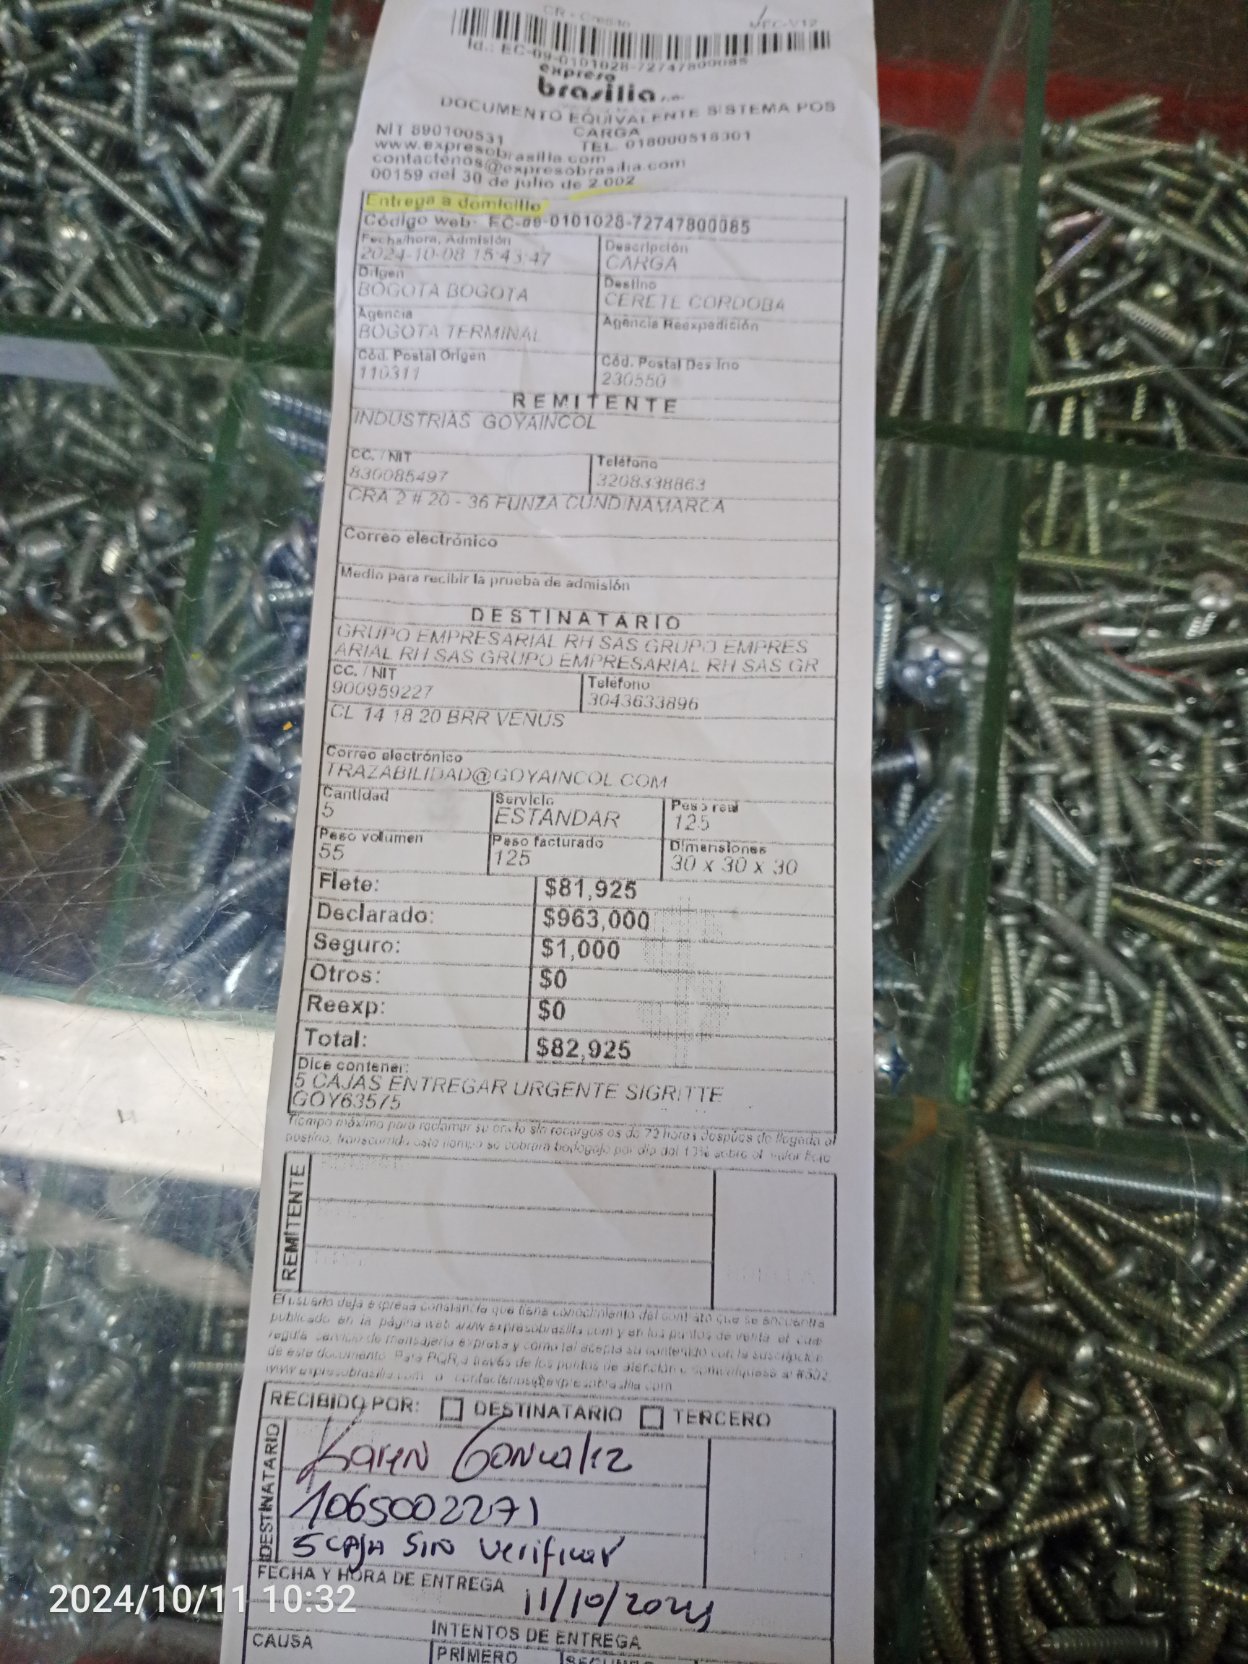 CR - Crédito
MFC-V12
Id.: EC-09-0101028-72747800085
expreso
brasilia s.a.
DOCUMENTO EQUIVALENTE SISTEMA POS
CARGA
NIT 890100531 TEL. 018000518001
www.expresobrasilia.com
contactenos@expresobrasilia.com
00159 del 30 de julio de 2.002
Entrega a domicilio
Código web: EC-09-0101028-72747800085
Fecha/hora, Admisión Descripción
2024-10-08 15:43:47 CARGA
Origen Destino
BOGOTA BOGOTA CERETE CORDOBA
Agencia Agencia Reexpedición
BOGOTA TERMINAL
Cód. Postal Origen Cód. Postal Destino
110311 230550
REMITENTE
INDUSTRIAS GOYAINCOL
CC. / NIT Teléfono
830085497 3208338863
CRA 2 # 20 - 36 FUNZA CUNDINAMARCA
Correo electrónico
Medio para recibir la prueba de admisión
DESTINATARIO
GRUPO EMPRESARIAL RH SAS GRUPO EMPRES
ARIAL RH SAS GRUPO EMPRESARIAL RH SAS GR
CC. / NIT Teléfono
900959227 3043633896
CL 14 18 20 BRR VENUS
Correo electrónico
TRAZABILIDAD@GOYAINCOL.COM
Cantidad Servicio Peso real
5 ESTANDAR 125
Peso volumen Peso facturado Dimensiones
55 125 30 x 30 x 30
Flete: $81,925
Declarado: $963,000
Seguro: $1,000
Otros: $0
Reexp: $0
Total: $82,925
Dice contener:
5 CAJAS ENTREGAR URGENTE SIGRITTE
GOY63575
Tiempo máximo para reclamar su envío sin recargos es de 72 horas después de llegada al
destino, transcurrido este tiempo se cobrará bodegaje por día del 1% sobre el valor flete
REMITENTE
El usuario deja expresa constancia que tiene conocimiento del contrato que se encuentra
publicado en la página web www.expresobrasilia.com y en los puntos de venta, el cual
regula servicio de mensajería expresa y como tal acepta su contenido con la suscripción
de este documento. Para PQR, a través de los puntos de atención o comuníquese al #502
www.expresobrasilia.com o contactenos@expresobrasilia.com
RECIBIDO POR: DESTINATARIO TERCERO
DESTINATARIO
Karen Gonzalez
1065002271
5 caja Sin verificar
FECHA Y HORA DE ENTREGA 11/10/2024
2024/10/11 10:32
INTENTOS DE ENTREGA
CAUSA PRIMERO SEGUNDO